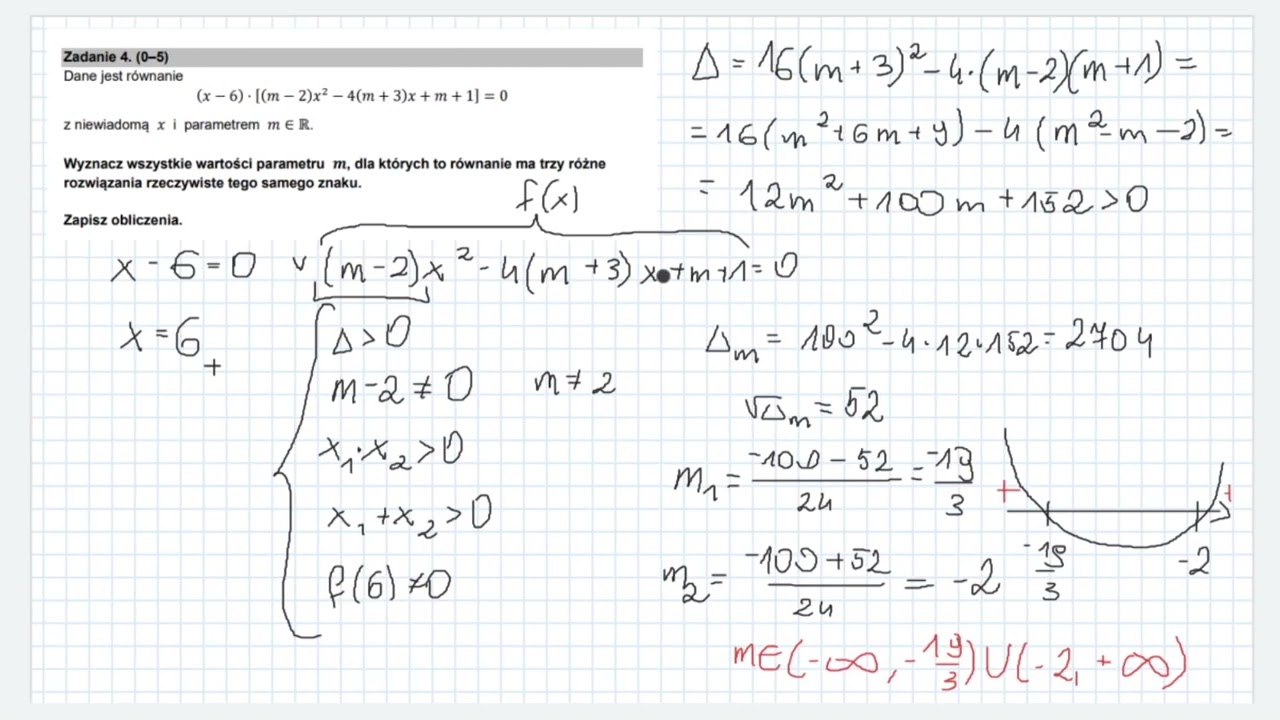 Zadanie 4. (0–5)
Dane jest równanie
(x − 6) · [(m − 2)x² − 4(m + 3)x + m + 1] = 0
z niewiadomą x i parametrem m ∈ ℝ.
Wyznacz wszystkie wartości parametru m, dla których to równanie ma trzy różne
rozwiązania rzeczywiste tego samego znaku.
Zapisz obliczenia.
f(x)
x - 6 = 0 v (m-2)x² - 4(m+3)x + m + 1 = 0
x = 6
+
Δ > 0
m - 2 ≠ 0 m ≠ 2
x₁·x₂ > 0
x₁ + x₂ > 0
f(6) ≠ 0
Δ = 16(m+3)² - 4·(m-2)(m+1) =
= 16(m² + 6m + 9) - 4(m² - m - 2) =
= 12m² + 100m + 152 > 0
Δm = 100² - 4·12·152 = 2704
√Δm = 52
m₁ = (-100 - 52)/24 = -19/3
m₂ = (-100 + 52)/24 = -2
+ +
-19/3 -2
m∈(-∞, -19/3)∪(-2, +∞)